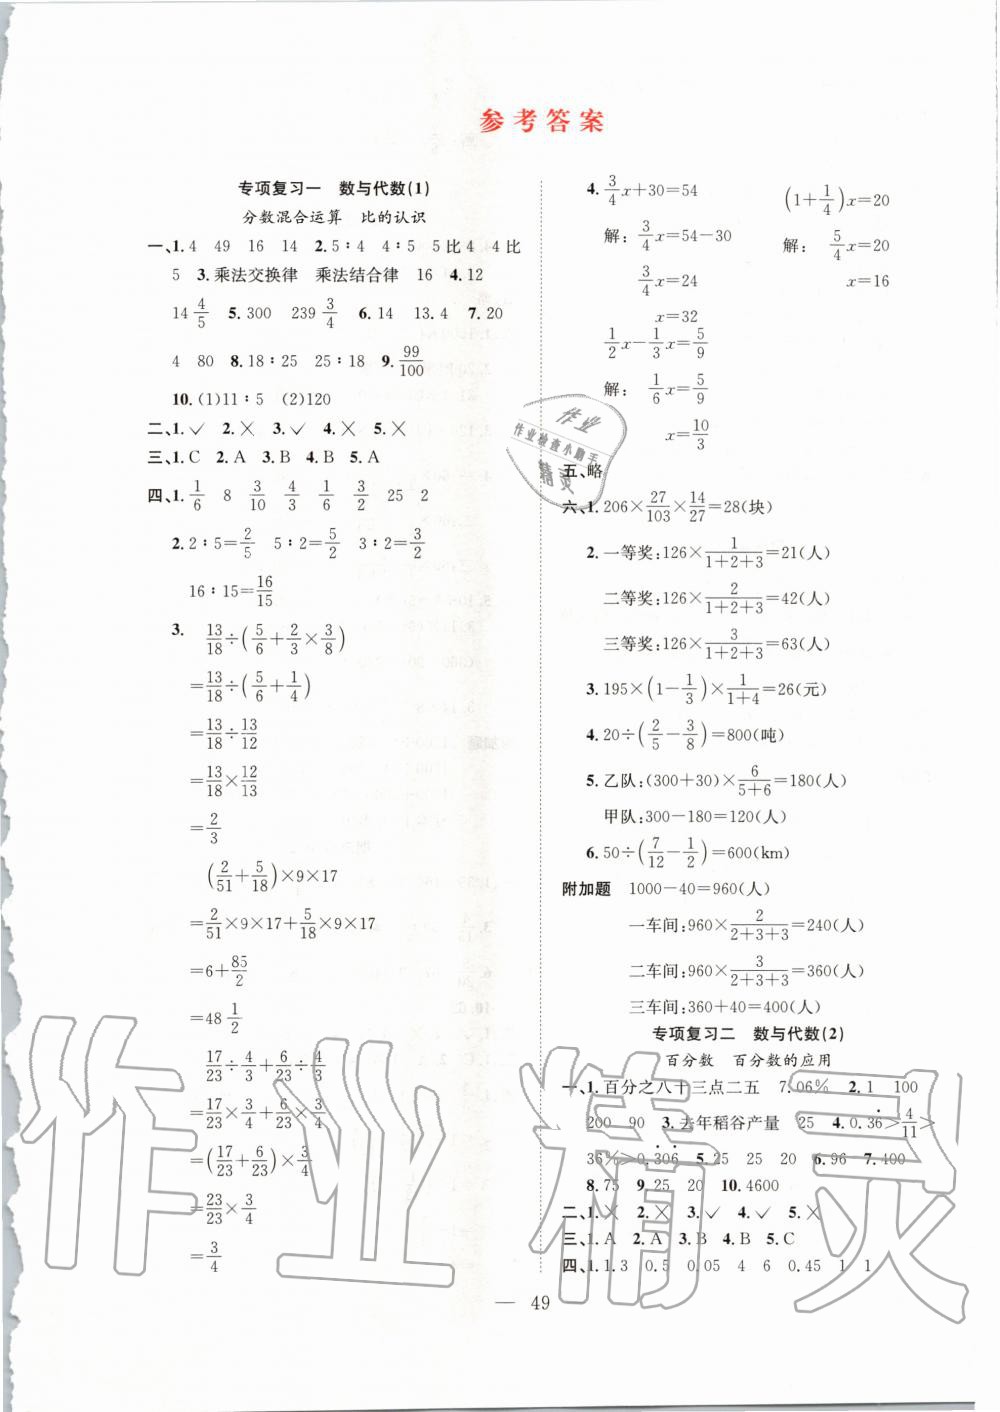 参考答案
专项复习一　数与代数(1)
分数混合运算　比的认识
一、1.4　49　16　14　2.5∶4　4∶5　5比4　4比
5　3.乘法交换律　乘法结合律　16　4.12
14 4/5　5.300　239 3/4　6.14　13.4　7.20
4　80　8.18∶25　25∶18　9. 99/100
10.(1)11∶5　(2)120
二、1.✓　2.✕　3.✓　4.✕　5.✕
三、1.C　2.A　3.B　4.B　5.A
四、1. 1/6　8　3/10　4/3　1/6　3/2　25　2
2.2∶5=2/5　5∶2=5/2　3∶2=3/2
16∶15=16/15
3. 13/18÷(5/6+2/3×3/8)
=13/18÷(5/6+1/4)
=13/18÷13/12
=13/18×12/13
=2/3
(2/51+5/18)×9×17
=2/51×9×17+5/18×9×17
=6+85/2
=48 1/2
17/23÷4/3+6/23÷4/3
=17/23×3/4+6/23×3/4
=(17/23+6/23)×3/4
=23/23×3/4
=3/4
4. 3/4x+30=54　(1+1/4)x=20
解：3/4x=54-30　解：5/4x=20
3/4x=24　x=16
x=32
1/2x-1/3x=5/9
解：1/6x=5/9
x=10/3
五、略
六、1.206×27/103×14/27=28(块)
2.一等奖:126×1/(1+2+3)=21(人)
二等奖:126×2/(1+2+3)=42(人)
三等奖:126×3/(1+2+3)=63(人)
3.195×(1-1/3)×1/(1+4)=26(元)
4.20÷(2/5-3/8)=800(吨)
5.乙队:(300+30)×6/(5+6)=180(人)
甲队:300-180=120(人)
6.50÷(7/12-1/2)=600(km)
附加题　1000-40=960(人)
一车间:960×2/(2+3+3)=240(人)
二车间:960×3/(2+3+3)=360(人)
三车间:360+40=400(人)
专项复习二　数与代数(2)
百分数　百分数的应用
一、1.百分之八十三点二五　7.06%　2.1　100
200　90　3.去年稻谷产量　25　4.0.36̇>4/11>
36%>0.3̇06̇　5.25　25　20　6.96　7.400
8.75　9.25　20　10.4600
二、1.✕　2.✕　3.✓　4.✓　5.✕
三、1.A　2.A　3.B　4.B　5.C
四、1.1.3　0.5　0.05　4　6　0.45　1　1
— 49
作业
作业检查小助手
精灵
作业精灵